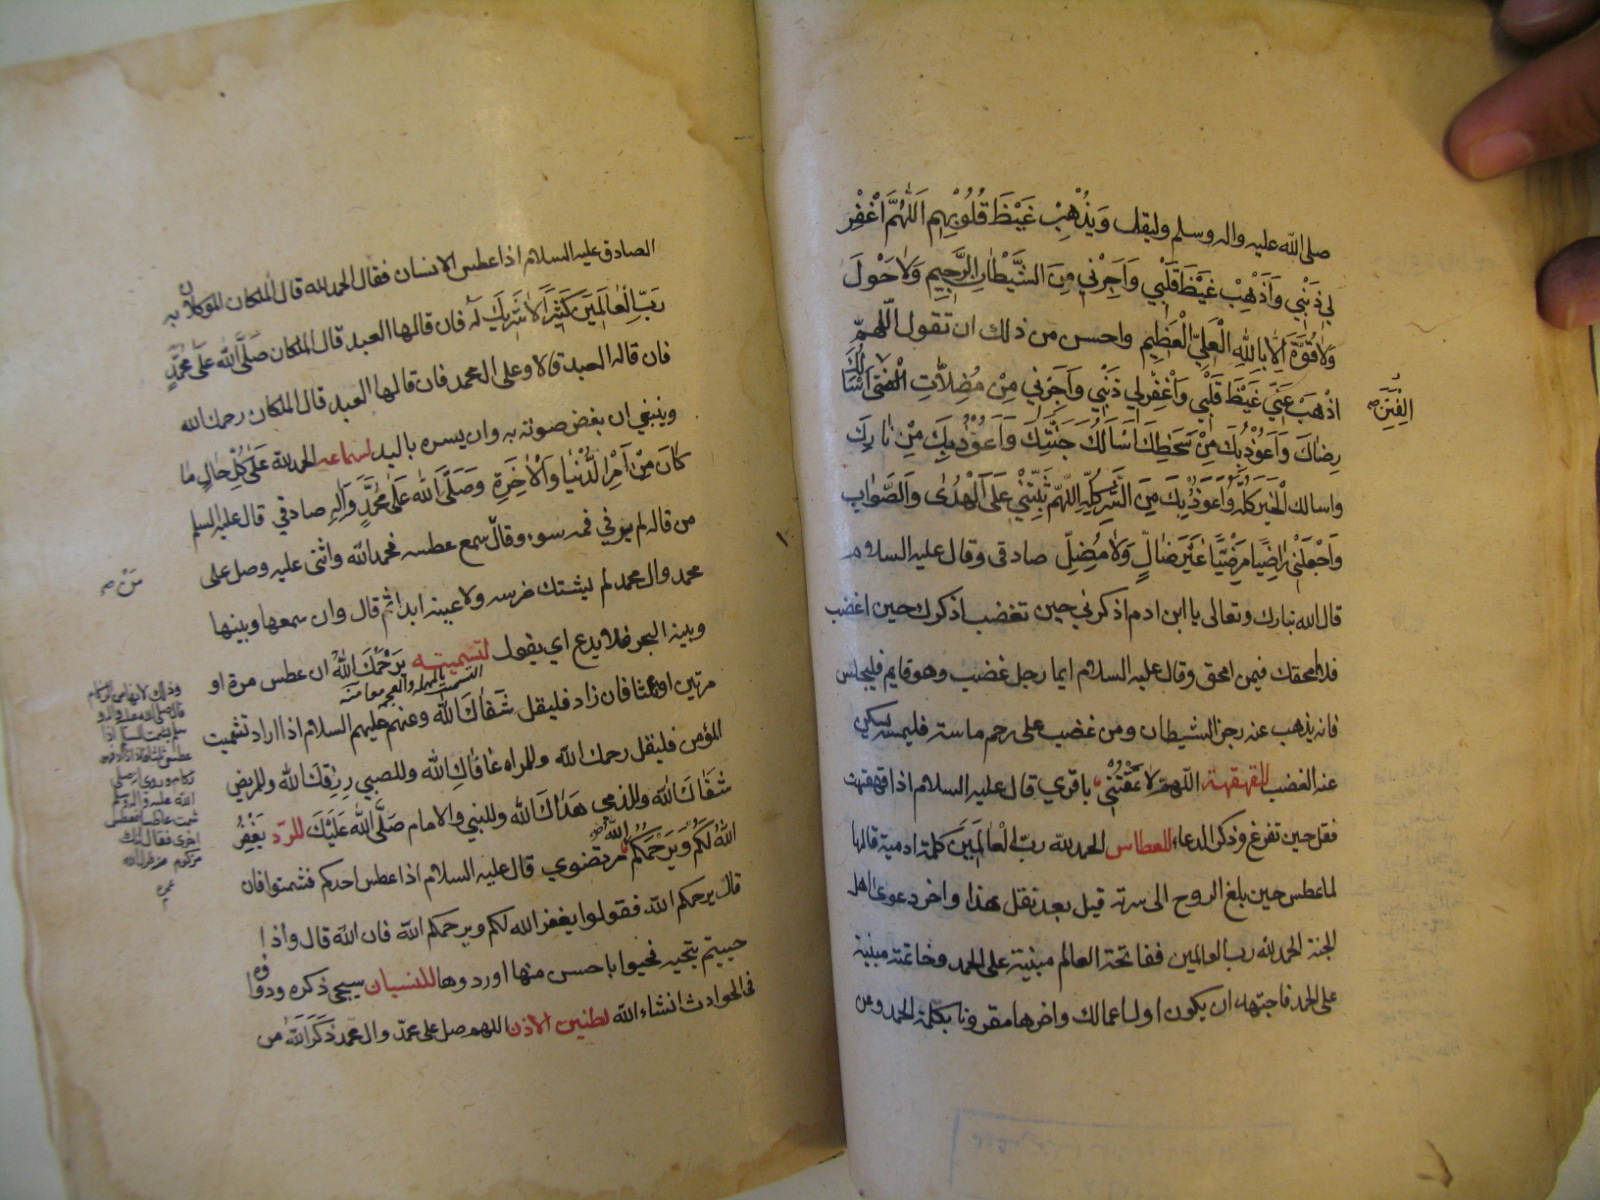 صلى الله عليه واله وسلم وليقل وَيُذْهِبْ غَيْظَ قُلُوبِهِم اَللّهُمَّ اغْفِر
لي ذَنْبي وَأَذْهِبْ غَيْظَ قَلْبي وَاَجِرْني مِنَ الشَّيْطَانِ الرَّجِيمِ وَلاَ حَوْلَ
وَلاَ قُوَّةَ اِلاّ بِاللهِ الْعَلِيِّ الْعَظِيمِ واحسن من ذلك ان تقول اللّهمّ
اذْهَبْ عَنّي غَيْظَ قَلْبي وَاغْفِرْ لي ذَنْبي وَاَجِرْني مِنْ مُضِلاّتِ الْفتن اَسْأَلُكَ
الْفِتَنِ صح
رِضَاكَ وَاَعُوذُ بِكَ مِنْ سَخَطِكَ اَسْأَلُكَ جَنَّتَكَ وَاَعُوذُ بِكَ مِنْ نَارِكَ
واسالك الْخَيْرَ كُلَّهُ وَاَعوُذُ بِكَ مِنَ الشَّرِّ كُلِّهِ اللّهُمّ ثَبِّتْنِي عَلَى الْهُدى وَالصَّوابِ
وَاجْعَلْنِي رَاضِيًا مَرْضِيًّا غَيْرَ ضَالٍّ وَلاَ مُضِلّ صادقى وقال عليه السلام
قال الله تبارك وتعالى يا ابن ادم اذكرني حين تغضب اذكرك حين اغضب
فلا امحقك فيمن امحق وقال عليه السلام ايما رجل غضب وهو قايم فليجلس
فانه يذهب عنه رجز الشيطان ومن غضب على رحم ماسه فليمسه يسكن
عنه الغضب للقهقهة اللّهمّ لاَ تَمْقُتْنِي باقري قال عليه السلام اذا قهقهت
فقل حين تفرغ وذكر الدعاء للعطاس الحمد لله ربّ الْعالَمِينَ كلمة ادمية قالها
لما عطس حين بلغ الروح الى سرته قيل بعد نقل هذا واخر دعوى اهل
الجنة الحمد لله رب العالمين ففاتحة العالم مبنية على الحمد وخاتمته مبنية
على الحمد فاجتهد ان يكون اول اعمالك واخرها مقرونا بكلمة الحمد ومن
الصادق عليه السلام اذا عطس الانسان فقال الحمد لله قال الملكان الموكلان به
رَبِّ الْعَالَمِينَ كَثِيرًا لاَ شَرِيكَ لَهُ فان قالها العبد قال الملكان صَلَّى اللهُ عَلَى مُحَمَّدٍ
فان قاله العبد قالا وعلى ال محمد فان قالها العبد قال الملكان رحمك الله
وينبغي ان يغض صوته به وان يستره باليد لسماعه الحمد لله عَلَى كُلِّ حَالٍ مَا
كَانَ مِنْ اَمْرِ الدُّنْيَا وَالْاخِرَةِ وَصَلَّى اللهُ عَلَى مُحَمَّدٍ وَآلِهِ صادقي قال عليه السلم
من قاله لم ير في فمه سوء وقال من سمع عطسه فحمد الله واثنى عليه وصل على
مَنْ صح
محمد وال محمد لم يشتك ضرسه ولا عينه ابدا ثم قال وان سمعها وبينها
وبينه البحر فلا يدع اي يقول لتسميته يَرْحَمُكَ اللهُ ان عطس مرة او
مرتين او ثلثا فان زاد فليقل شَفَاكَ اللهُ وعنهم عليهم السلام اذا اراد تشميت
المؤمن فليقل رحمك الله وللمراه عَافَاكِ اللهُ وللصبي رزقك اللهُ وللمريض
شَفَاكَ اللهُ وللذمي هَدَاكَ اللهُ وللنبي والامام صَلَّى اللهُ عَلَيْكَ للرّد يَغْفِرُ
اللهُ لَكُمْ وَيَرْحَمُكُم الله مرتضوي قال عليه السلام اذا عطس احدكم فشمتوا فان
قال يرحمكم الله فقولوا يغفر الله لكم ويرحمكم الله فان الله قال واذا
حييتم بتحيه فحيوا باحسن منها او ردوها للنسيان سيجئ ذكره ودواؤه
في الحوادث انشاء الله لطنين الاذن اللهم صل على محمّد وال محمّد ذَكَرَ اللهُ من